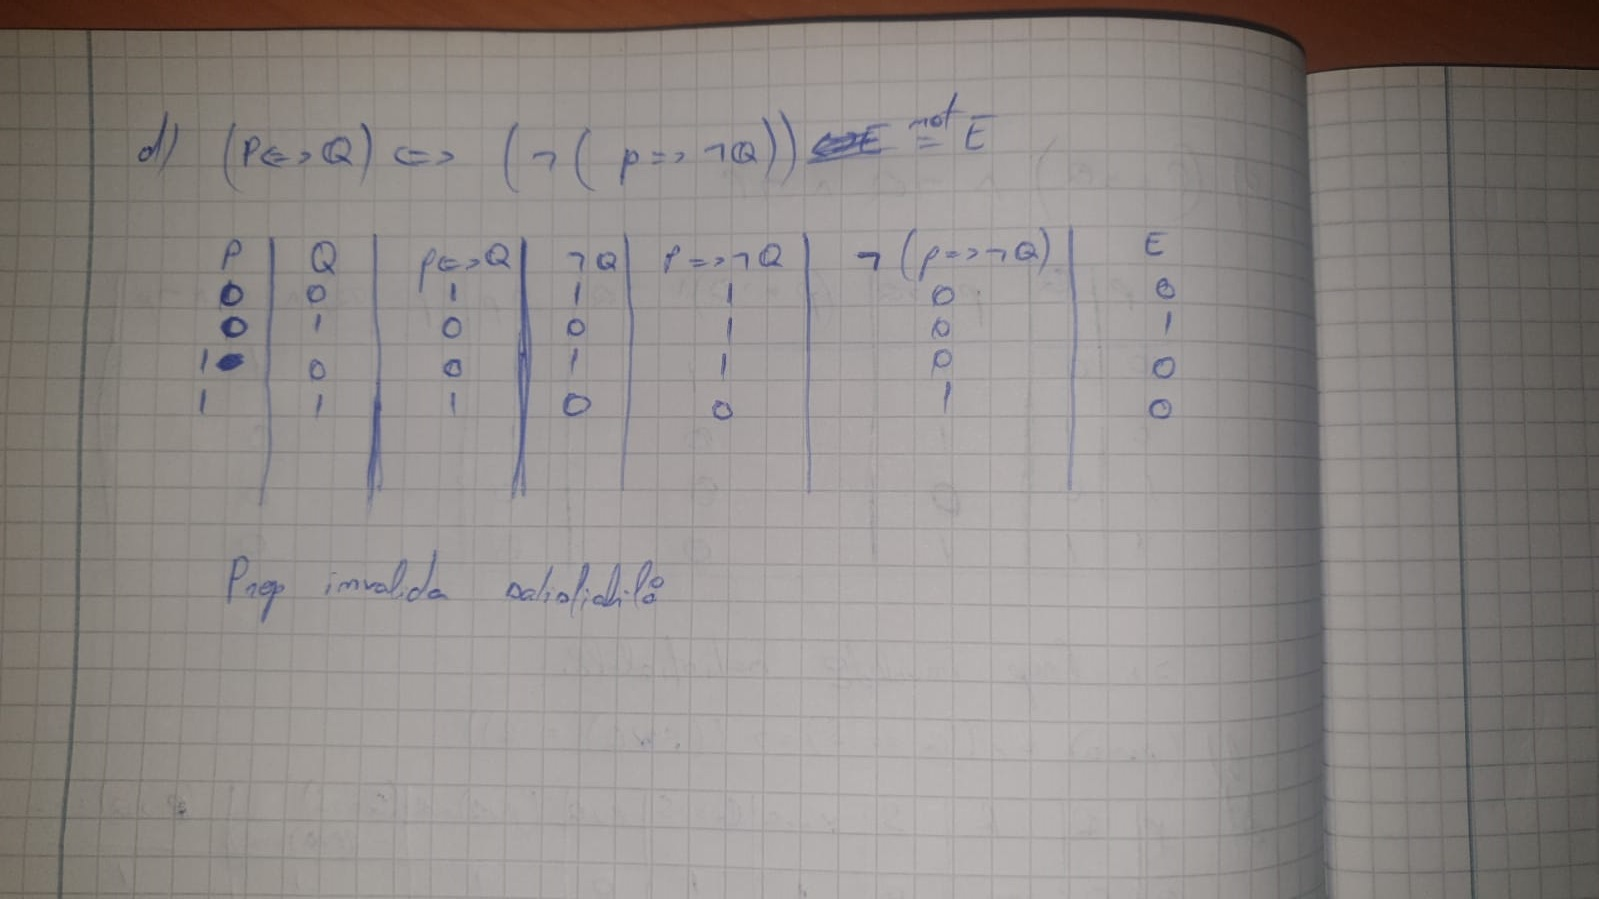 d) (P<=>Q) <=> (¬( p=>¬Q)) not= E
P | Q | p<=>Q | ¬Q | P=>¬Q | ¬(p=>¬Q) | E
0 0 1 1 1 0 0
0 1 0 0 1 0 1
1 0 0 1 1 0 0
1 1 1 0 0 1 0
Prop invalida